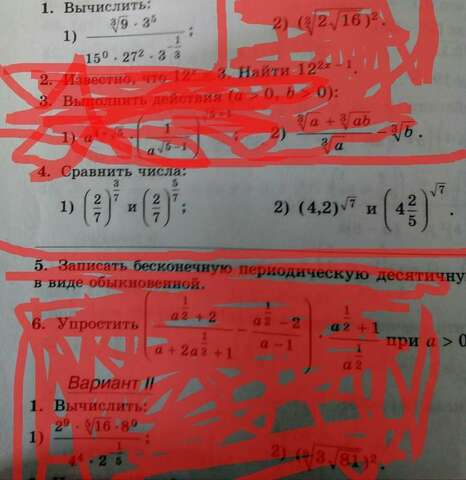 1. Вычислить:
1) (∛9 · 3⁵) / (15⁰ · 27² · 3^(-1/3)) ; 2) (∛(2√16))².
2. Известно, что 12ˣ = 3. Найти 12^(2x − 1).
3. Выполнить действия (a > 0, b > 0):
2) (∛a + ∛(ab)) / ∛a − ∛b.
4. Сравнить числа:
1) (2/7)^(3/7) и (2/7)^(5/7); 2) (4,2)^√7 и (4 2/5)^√7.
5. Записать бесконечную периодическую десятичну
в виде обыкновенной.
6. Упростить ((a^(1/2) + 2) / (a + 2a^(1/2) + 1) − (a^(1/2) − 2) / (a − 1)) · (a^(1/2) + 1) / a^(1/2) при a > 0
Вариант II
1. Вычислить: